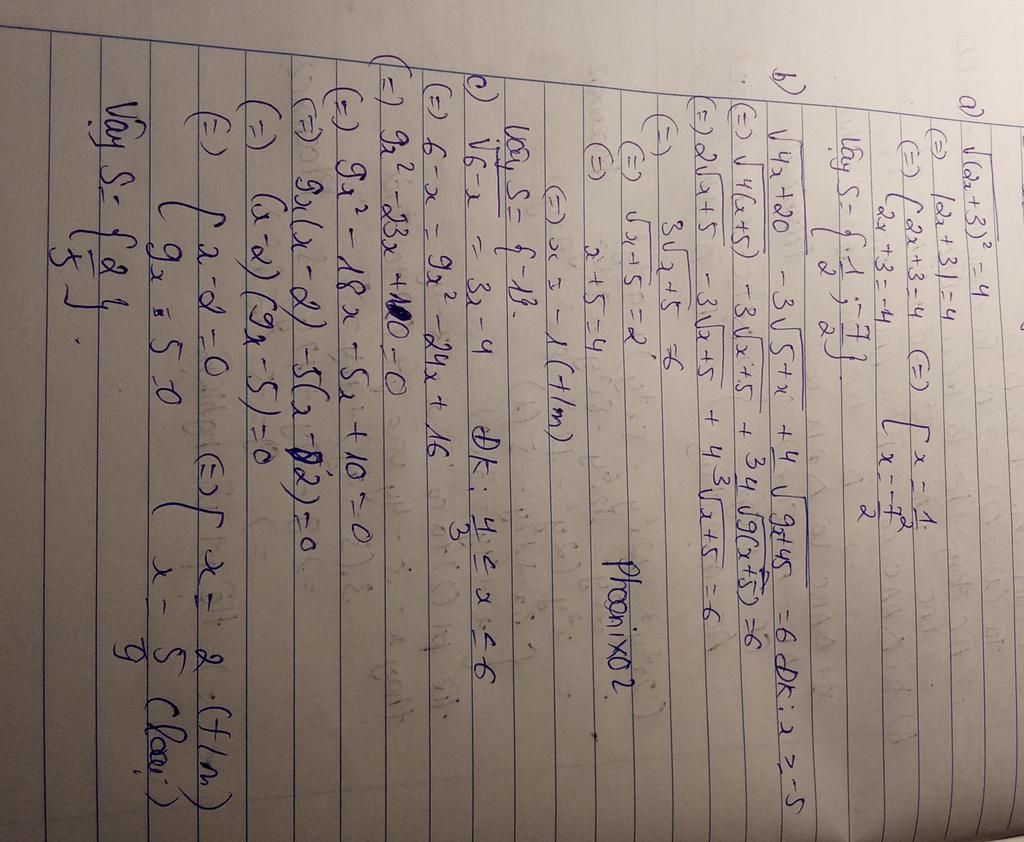 a) √(2x+3)² = 4
(=) |2x+3| = 4
(=) [ 2x+3 = 4 (=) [ x = 1/2
2x+3 = -4 x = -7/2
Vậy S = { 1/2 ; -7/2 }
b) √4x+20 - 3√5+x + 4/3 √9x+45 = 6 ĐK: x ≥ -5
(=) √4(x+5) - 3√x+5 + 4/3 √9(x+5) = 6
(=) 2√x+5 - 3√x+5 + 4√x+5 = 6
(=) 3√x+5 = 6
(=) √x+5 = 2
(=) x+5 = 4
Phoenix02
(=) x = -1 (t/m)
Vậy S = { -1 }.
c) √6-x = 3x - 4 ĐK: 4/3 ≤ x ≤ 6
(=) 6-x = 9x² - 24x + 16
(=) 9x² - 23x + 10 = 0
(=) 9x² - 18x - 5x + 10 = 0
(=) 9x(x-2) - 5(x-2) = 0
(=) (x-2)(9x-5) = 0
(=) [ x-2 = 0 (=) [ x = 2 (t/m)
9x - 5 = 0 x = 5/9 (loại)
Vậy S = { 2 }.